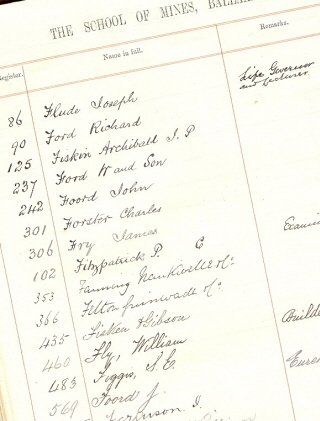 THE SCHOOL OF MINES,
Register. Name in full. Remarks.
86 Flude Joseph Life Governor and Lecturer.
90 Ford Richard
125 Fiskin Archibald J. P
237 Ford W and Son
242 Foord John
301 Forster Charles
306 Fry James
102 Fitzpatrick P. C
353 Fanning Nankivell & Co.
366 Felton Grimwade & Co.
435 Fisken & Gibson
460 Fly, William
483 Figgis, S. E.
569 Foord J.
Ferguson, J.